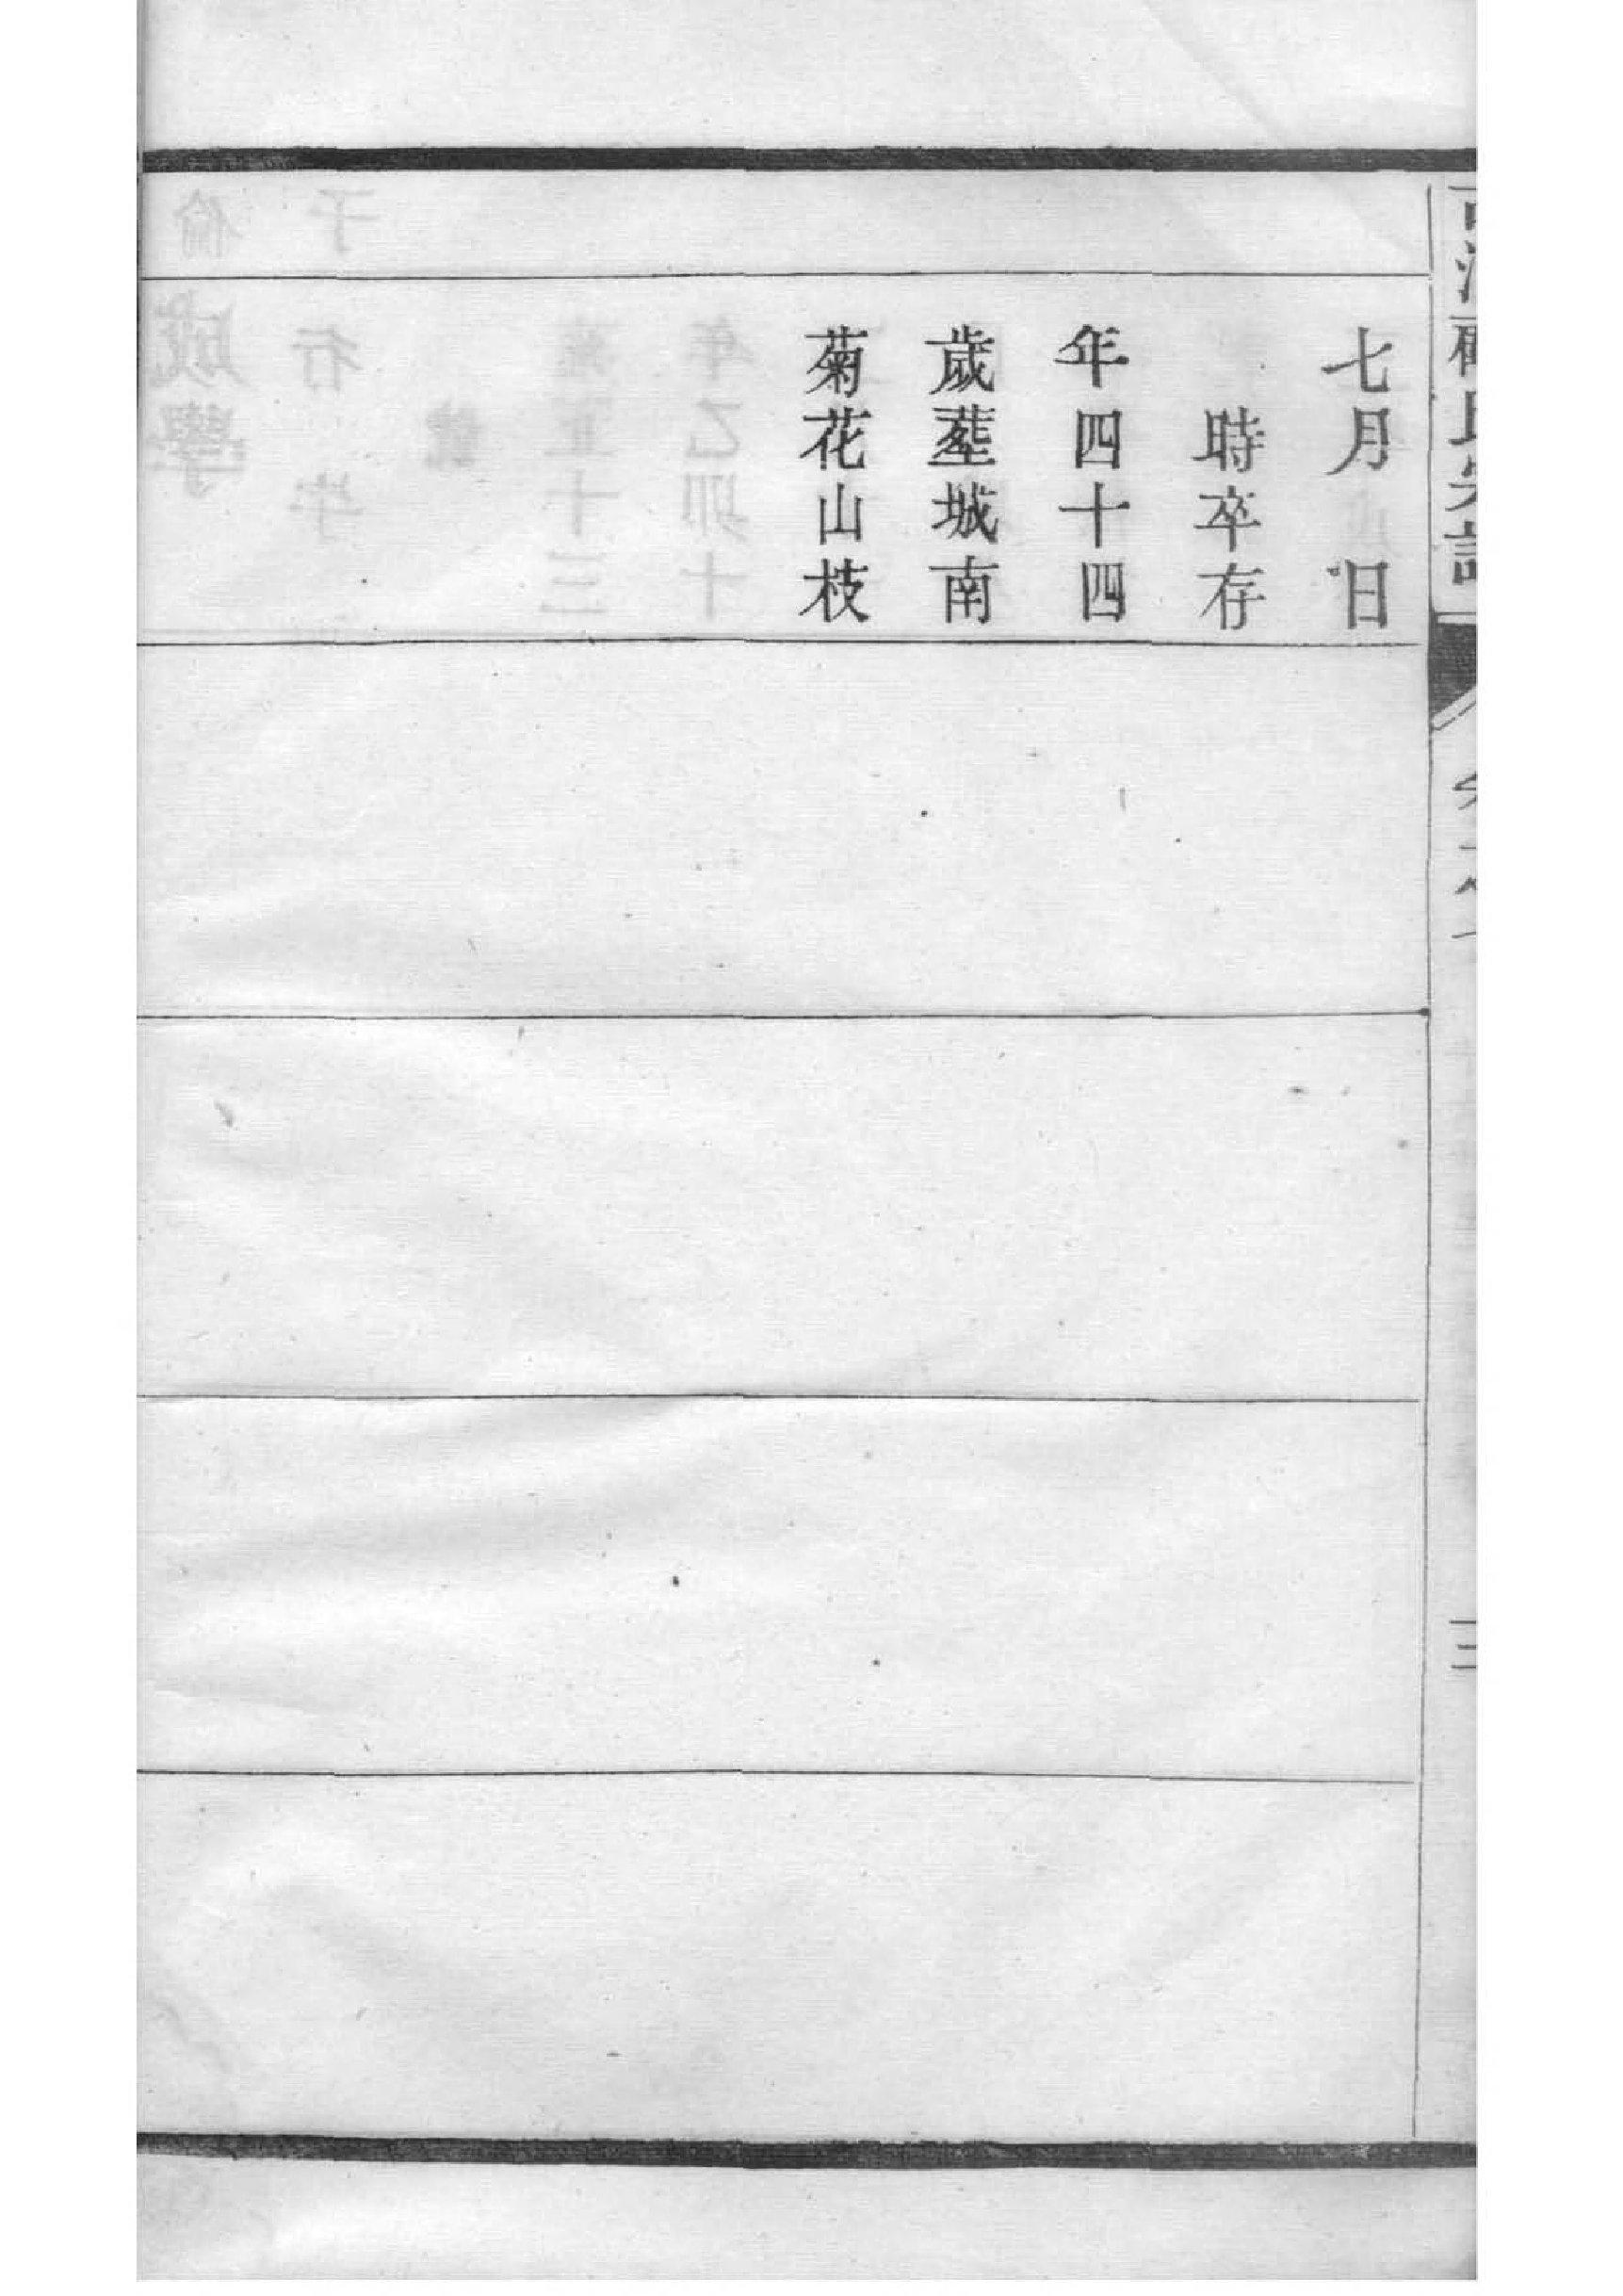 七月　日
時卒存
年四十四
歲塟城南
菊花山枝
三